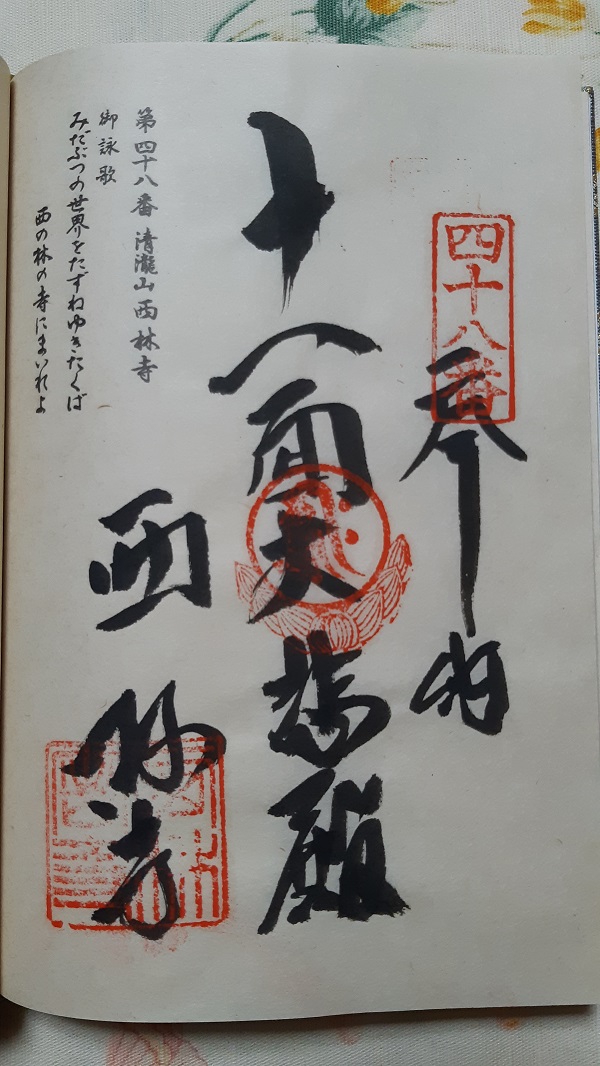 四十八番
奉納
十一面大悲殿
第四十八番 清瀧山 西林寺
御詠歌
みだぶつの世界をたずねゆきたくば
西の林の寺にまいれよ
西林寺